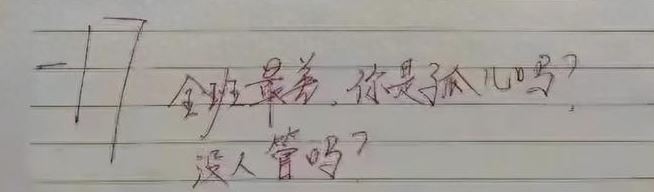 -17
全班最差,你是孤儿吗?
没人管吗?